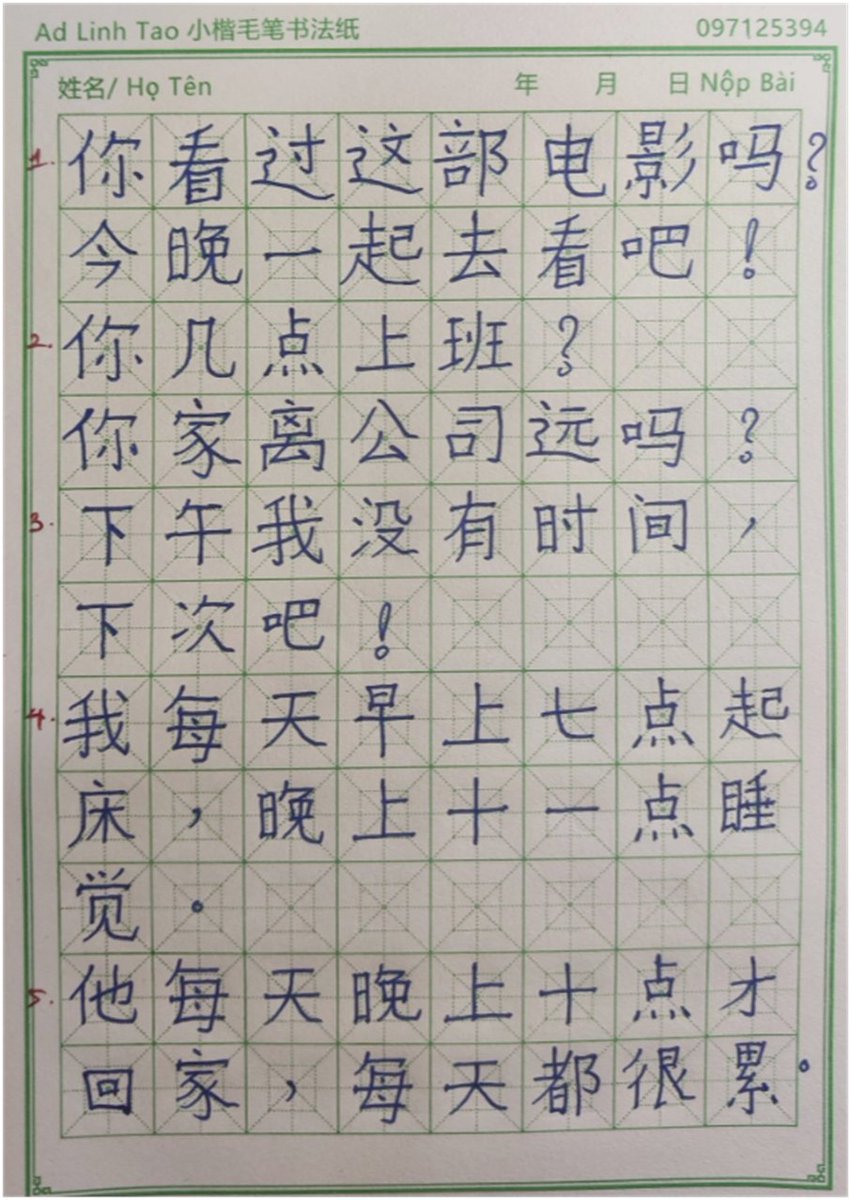 Ad Linh Tao 小楷毛笔书法纸 097125394
姓名/ Họ Tên 年 月 日 Nộp Bài
1. 你看过这部电影吗?
今晚一起去看吧!
2. 你几点上班?
你家离公司远吗?
3. 下午我没有时间,
下次吧!
4. 我每天早上七点起
床,晚上十一点睡
觉。
5. 他每天晚上十点才
回家,每天都很累。